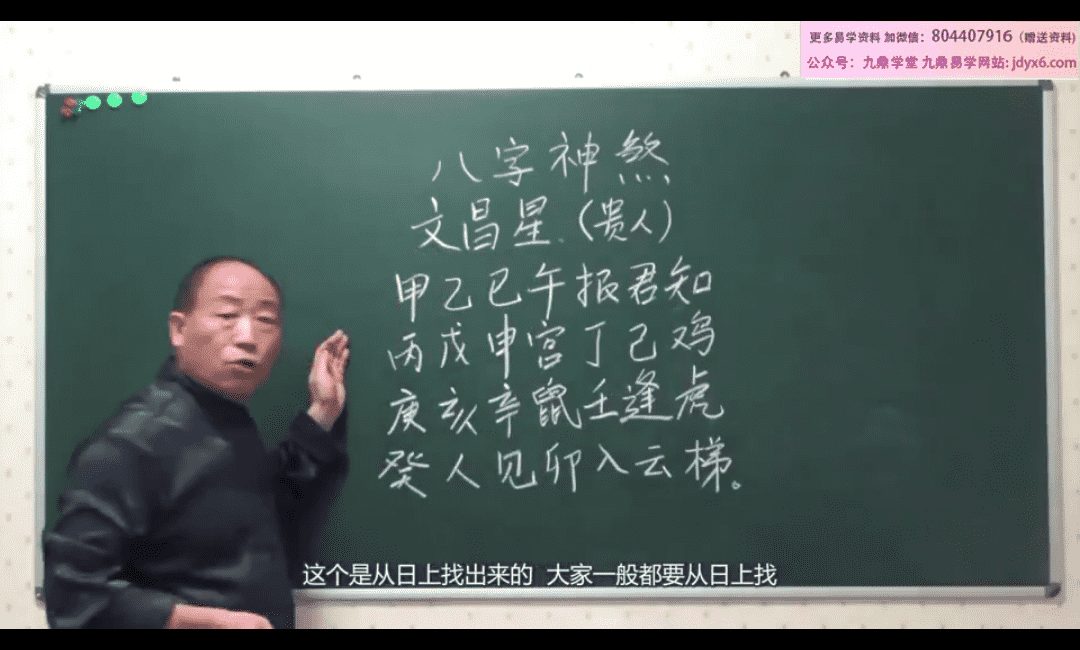 更多易学资料 加微信：804407916（赠送资料）
公众号：九鼎学堂 九鼎易学网站: jdyx6.com
八字神煞
文昌星.（贵人）
甲乙巳午报君知
丙戊申宫丁己鸡
庚亥辛鼠壬逢虎
癸人见卯入云梯。
这个是从日上找出来的 大家一般都要从日上找